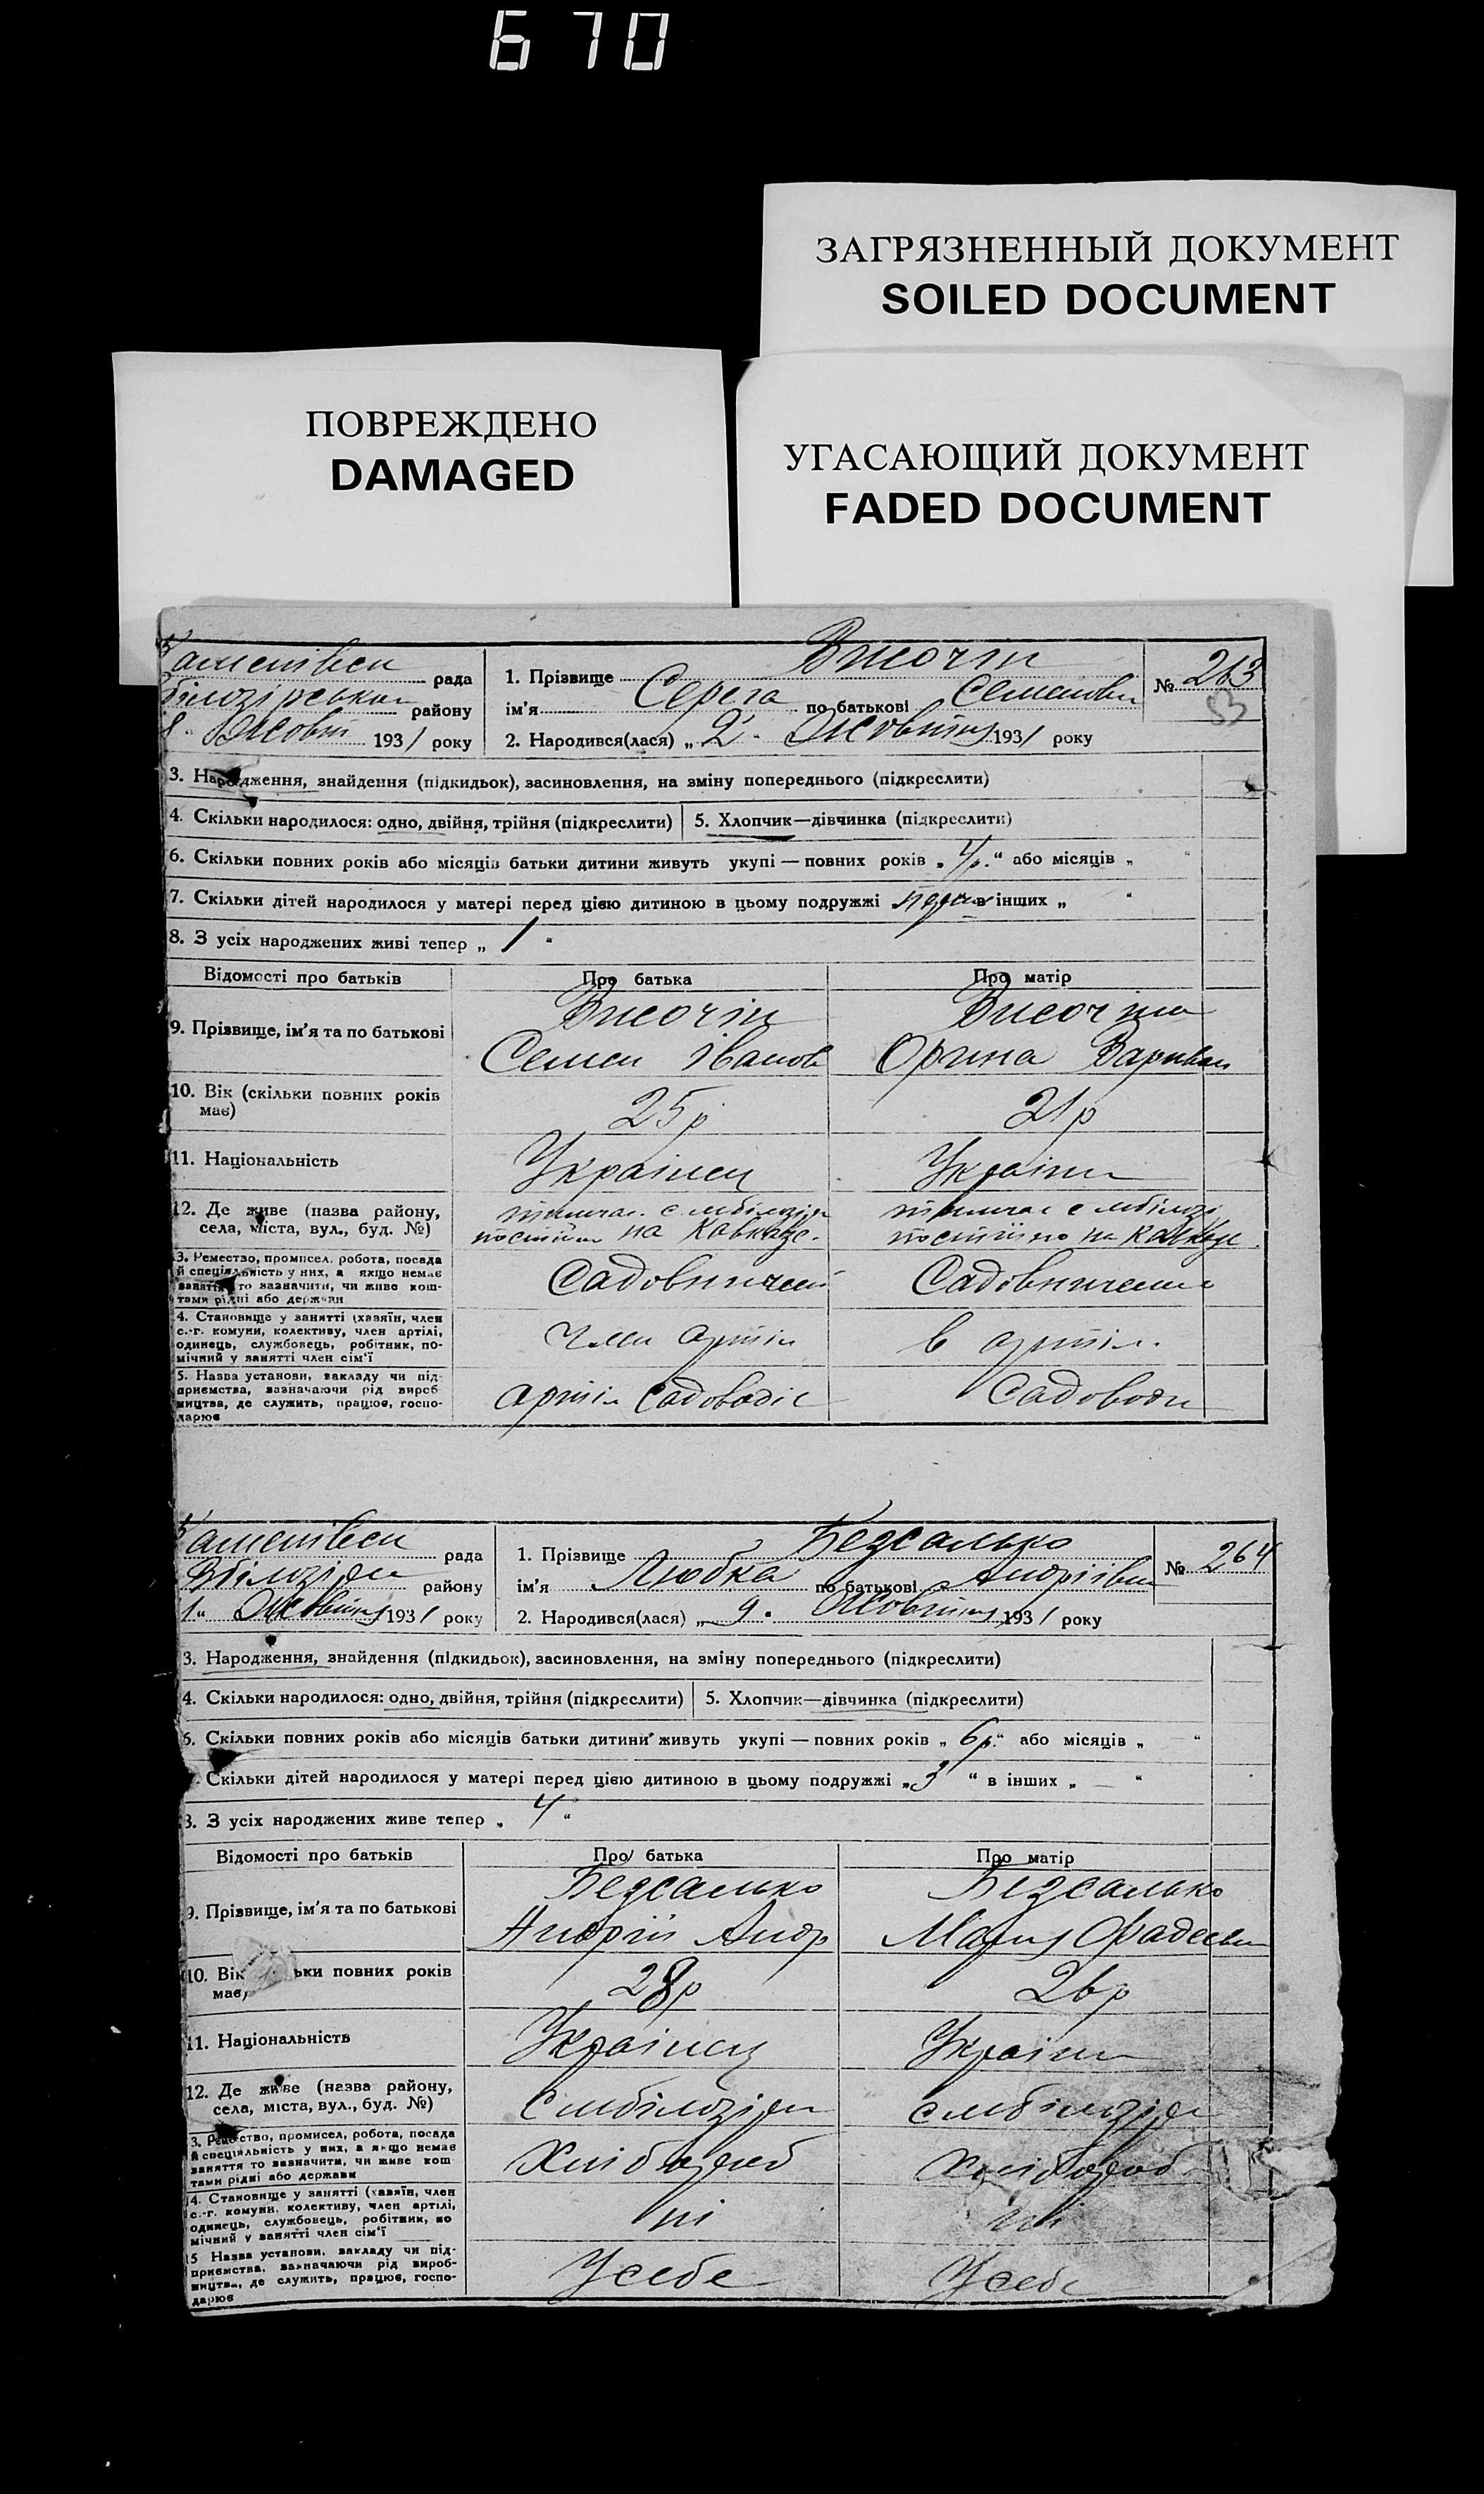 670
ЗАГРЯЗНЕННЫЙ ДОКУМЕНТ
SOILED DOCUMENT
ПОВРЕЖДЕНО
DAMAGED
УГАСАЮЩИЙ ДОКУМЕНТ
FADED DOCUMENT
рада
району
1931 року
1. Прізвище Височін
ім'я Серега по батькові Семенови
2. Народився(лася) „ 2 " Жовтня 1931 року
№ 263
53
3. Народження, знайдення (підкидьок), засиновлення, на зміну попереднього (підкреслити)
4. Скільки народилося: одно, двійня, трійня (підкреслити) 5. Хлопчик—дівчинка (підкреслити)
6. Скільки повних років або місяців батьки дитини живуть укупі — повних років „ 4р. " або місяців „ "
7. Скільки дітей народилося у матері перед цією дитиною в цьому подружжі „ в інших „ "
8. З усіх народжених живі тепер „ 1 "
Відомості про батьків Про батька Про матір
9. Прізвище, ім'я та по батькові
Височін
Семен Іванов
Височина
Орина
10. Вік (скільки повних років
має)
25р
21р
11. Національність
Українец
Українк
12. Де живе (назва району,
села, міста, вул., буд. №)
на Кавказе.
постійно на Кавказе.
13. Ремество, промисел, робота, посада
й спеціяльність у них, а якщо немає
заняття то зазначити, чи живе кош-
тами рідні або держави
14. Становище у занятті (хазяїн, член
с.-г. комуни, колективу, член артілі,
одинець, службовець, робітник, по-
мічний у занятті член сім'ї
член артіл
в артіл.
15. Назва установи, закладу чи під-
приємства, зазначаючи рід вироб
ництва, де служить, працює, госпо-
дарює
артіл Садоводіс
Садоводи
рада
району
1931 року
1. Прізвище Безсалько
ім'я Любка по батькові Андріївн
2. Народився(лася) „ 9 " Жовтня 1931 року
№ 264
3. Народження, знайдення (підкидьок), засиновлення, на зміну попереднього (підкреслити)
4. Скільки народилося: одно, двійня, трійня (підкреслити) 5. Хлопчик—дівчинка (підкреслити)
6. Скільки повних років або місяців батьки дитини живуть укупі — повних років „ 6р. " або місяців „ "
Скільки дітей народилося у матері перед цією дитиною в цьому подружжі „ 3 " в інших „ — "
8. З усіх народжених живе тепер „ 4 "
Відомості про батьків Про батька Про матір
9. Прізвище, ім'я та по батькові
Безсалько
Андрій Андр
Безсалько
Мария Фадеевн
10. Вік ьки повних років
має)
28р
26р
11. Національність
Українец
Українк
12. Де живе (назва району,
села, міста, вул., буд. №)
13. Ремество, промисел, робота, посада
й спеціяльність у них, а якщо немає
заняття то зазначити, чи живе кош
тами рідні або держави
Хлібороб
Хлібороб
14. Становище у занятті (хазяїн, член
с.-г. комуни, колективу, член артілі,
одинець, службовець, робітник, по
мічний у занятті член сім'ї
ні
15 Назва установи, закладу чи під-
приємства, зазначаючи рід вироб-
ництва, де служить, працює, госпо-
дарює
У себе
У себе